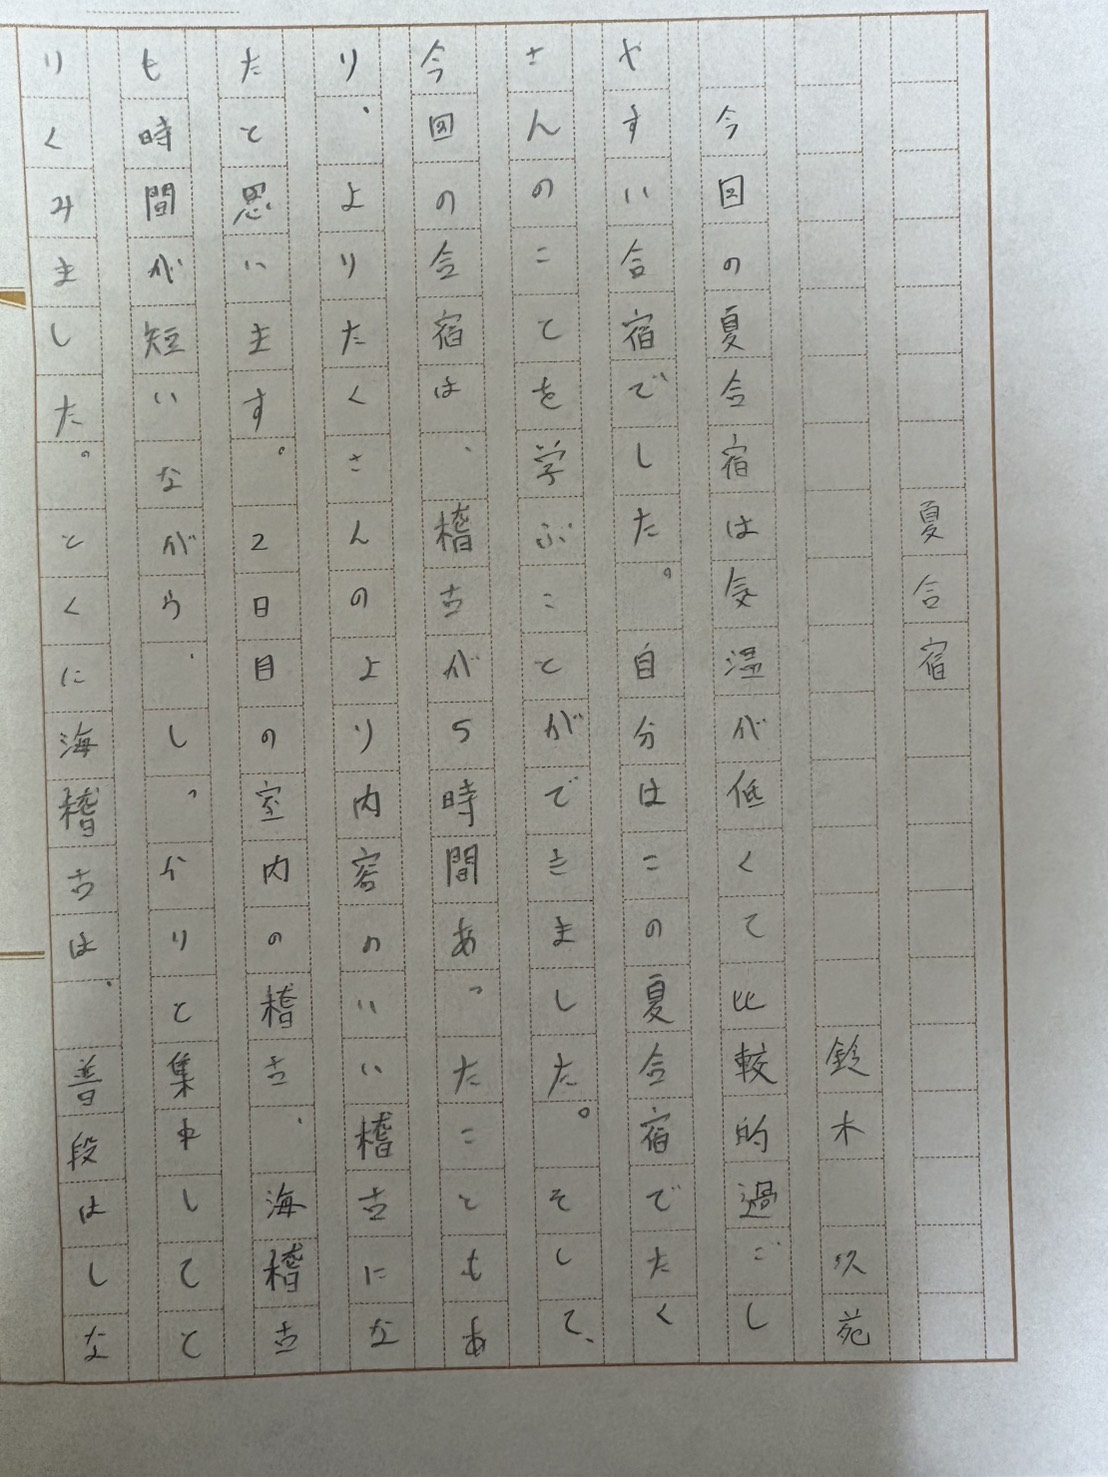 夏合宿
鈴木 玖苑
今回の夏合宿は気温が低くて比較的過ごし
やすい合宿でした。自分はこの夏合宿でたく
さんのことを学ぶことができました。そして、
今回の合宿は、稽古が5時間あったこともあ
り、よりたくさんのより内容のいい稽古にな
たと思います。2日目の室内の稽古、海稽古
も時間が短いながら、しっかりと集中してと
りくみました。とくに海稽古は、普段はしな